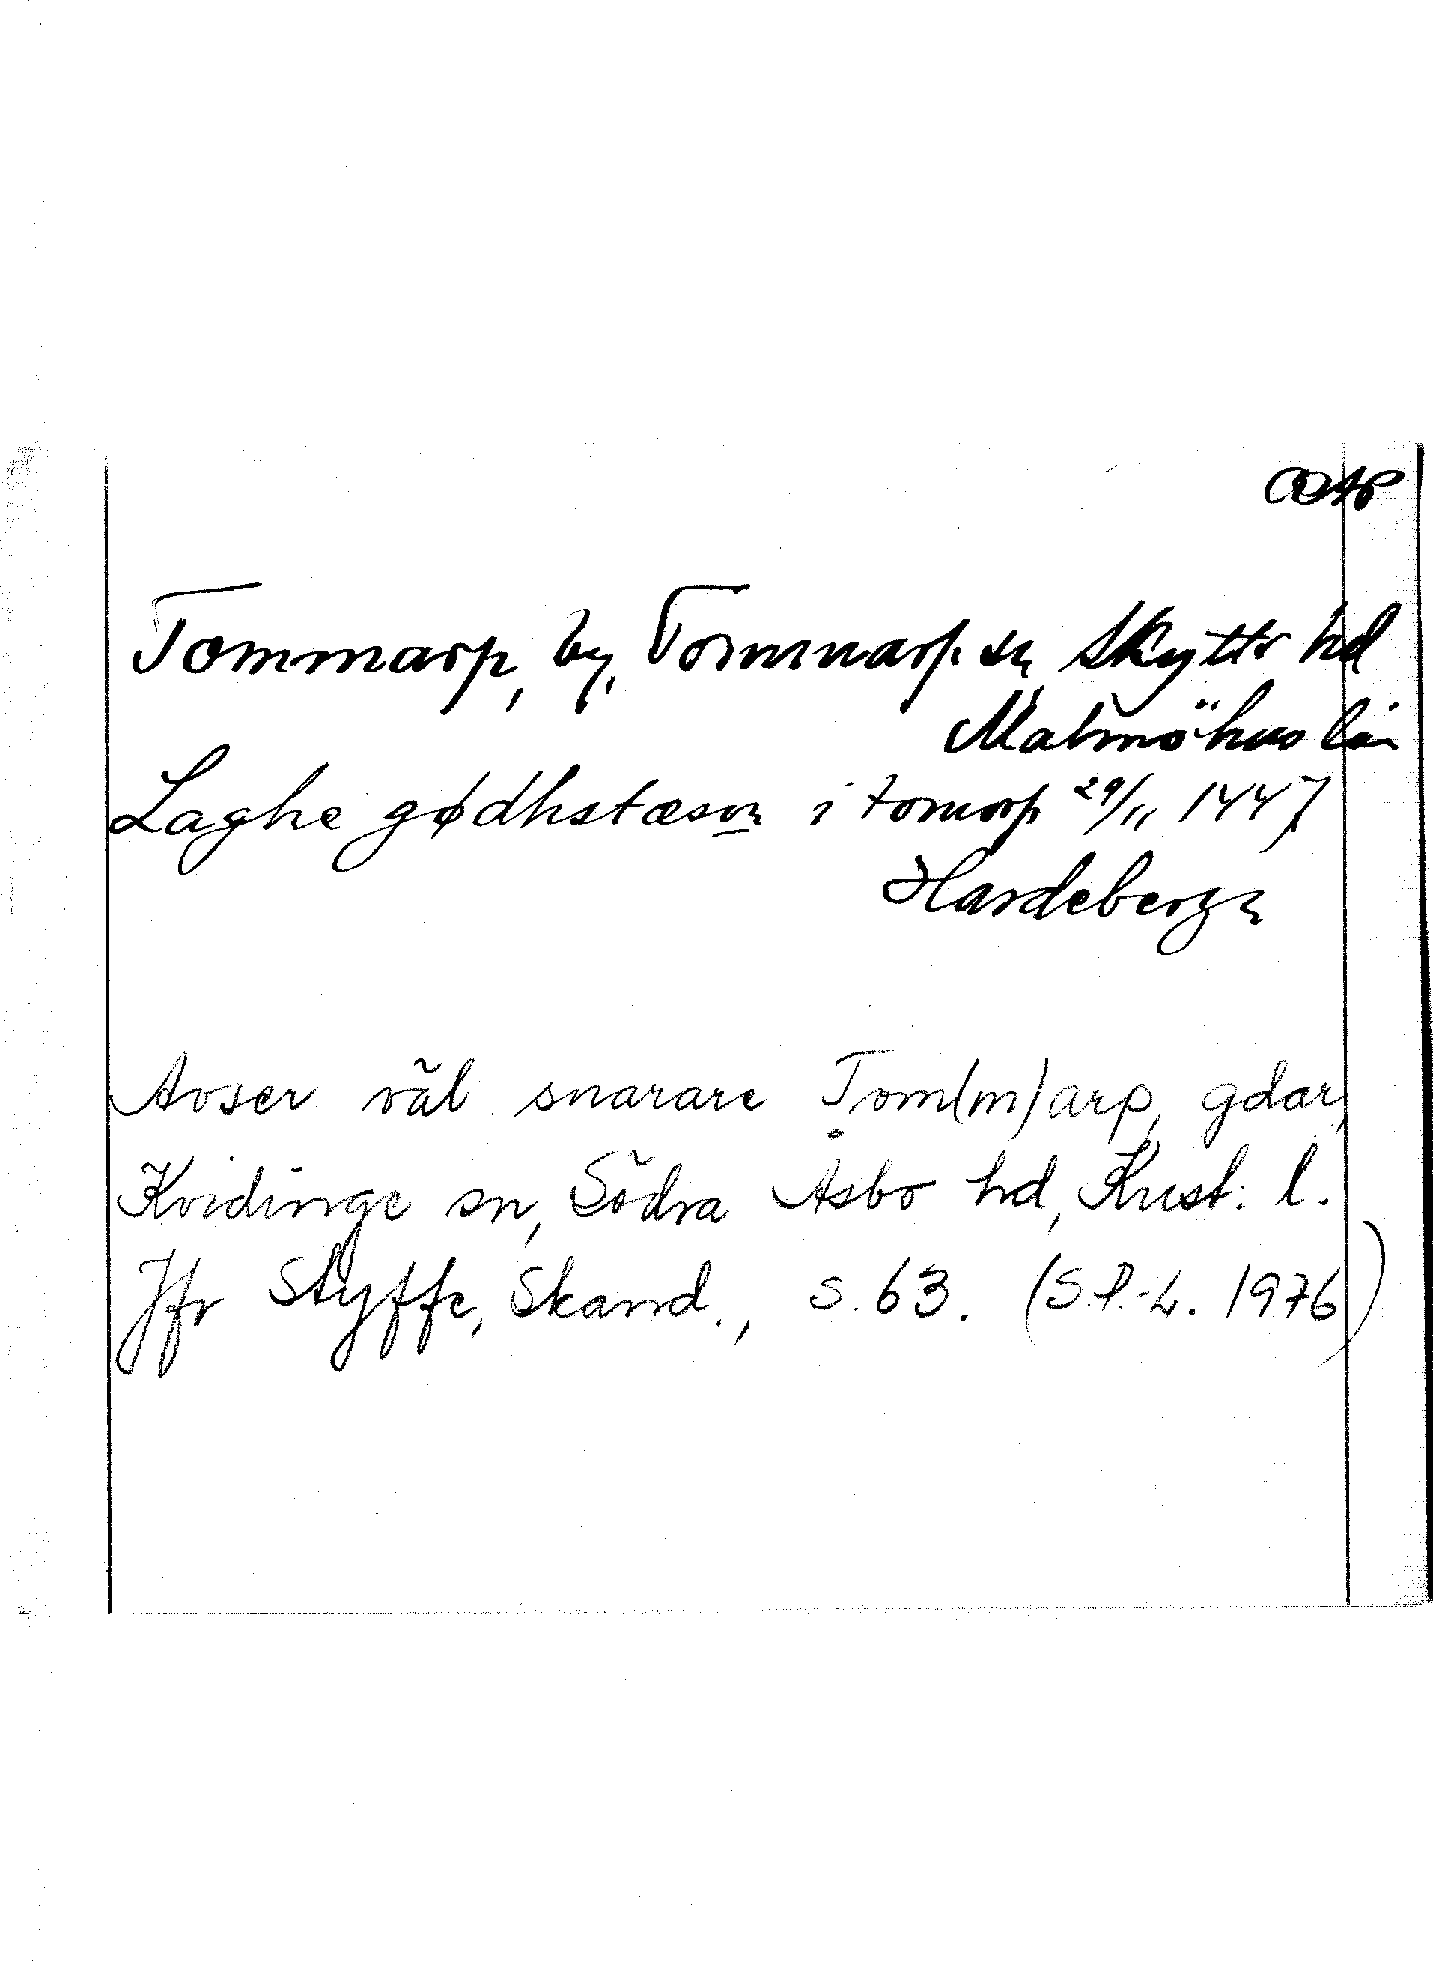 Tommarp, by, Tommarp sn, Skytts hd
Malmöhus län
Laghe gødhstæson i tomorp 29/11 1447
Hardeberga
Avser väl snarare Tom(m)arp, gdar,
Kvidinge sn, Södra Åsbo hd, Krist. l.
Jfr Styffe, Skand., s. 63. (S.P.-L. 1976)